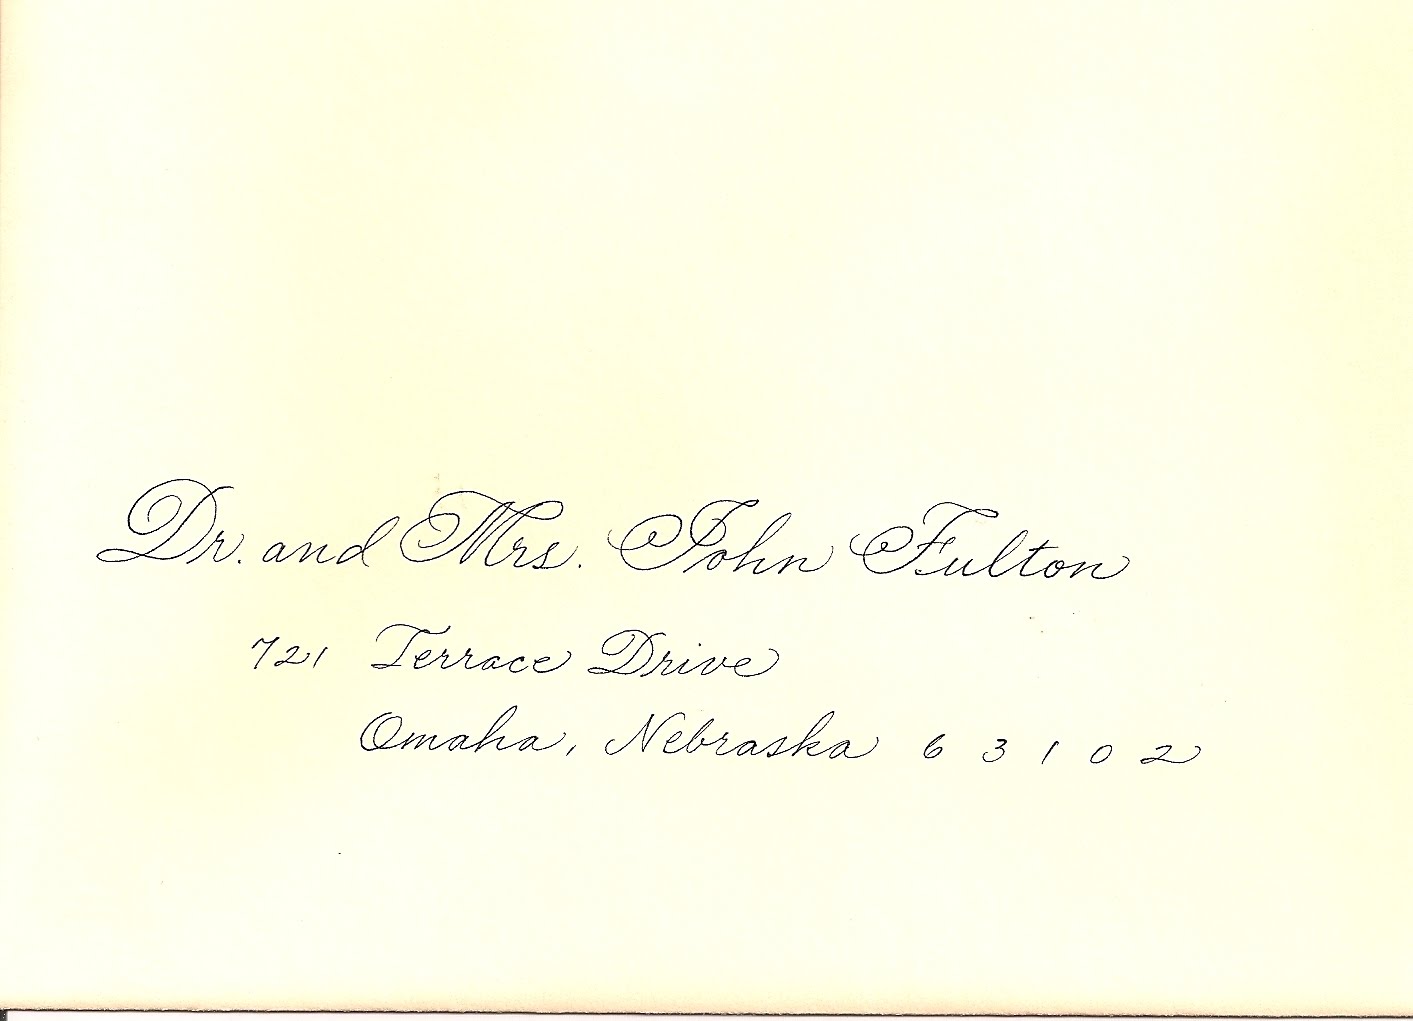 Dr. and Mrs. John Fulton
721 Terrace Drive
Omaha, Nebraska 63102